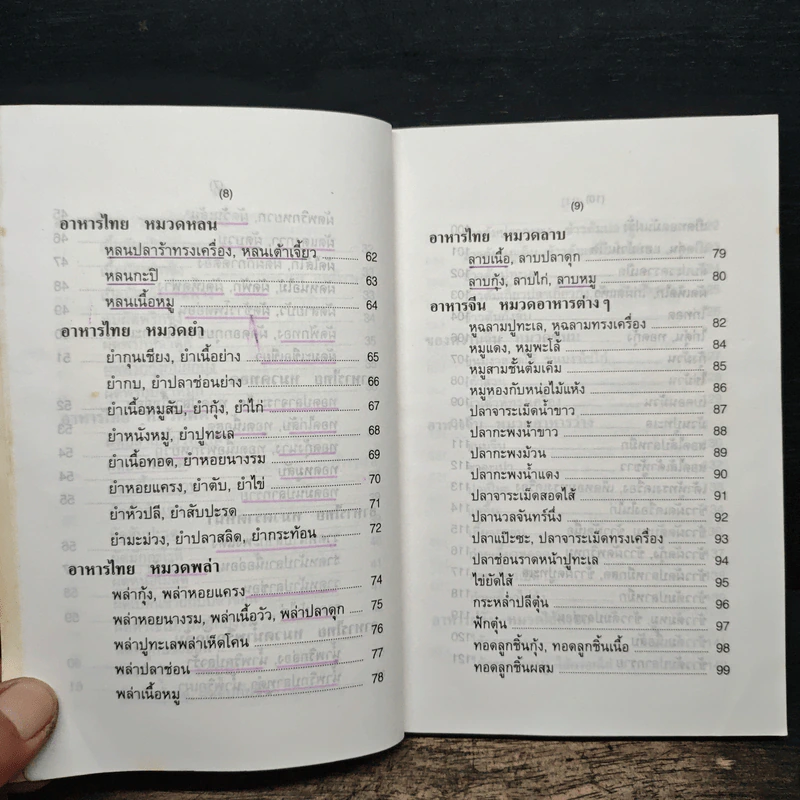 (8)
อาหารไทย หมวดหลน
หลนปลาร้าทรงเครื่อง, หลนเต้าเจี้ยว 62
หลนกะปิ 63
หลนเนื้อหมู 64
อาหารไทย หมวดยำ
ยำกุนเชียง, ยำเนื้อย่าง 65
ยำกบ, ยำปลาช่อนย่าง 66
ยำเนื้อหมูสับ, ยำกุ้ง, ยำไก่ 67
ยำหนังหมู, ยำปูทะเล 68
ยำเนื้อทอด, ยำหอยนางรม 69
ยำหอยแครง, ยำตับ, ยำไข่ 70
ยำหัวปลี, ยำสับปะรด 71
ยำมะม่วง, ยำปลาสลิด, ยำกระท้อน 72
อาหารไทย หมวดพล่า
พล่ากุ้ง, พล่าหอยแครง 74
พล่าหอยนางรม, พล่าเนื้อวัว, พล่าปลาดุก 75
พล่าปูทะเลพล่าเห็ดโคน 76
พล่าปลาช่อน 77
พล่าเนื้อหมู 78
(9)
อาหารไทย หมวดลาบ
ลาบเนื้อ, ลาบปลาดุก 79
ลาบกุ้ง, ลาบไก่, ลาบหมู 80
อาหารจีน หมวดอาหารต่าง ๆ
หูฉลามปูทะเล, หูฉลามทรงเครื่อง 82
หมูแดง, หมูพะโล้ 84
หมูสามชั้นต้มเค็ม 85
หมูหองกับหน่อไม้แห้ง 86
ปลาจาระเม็ดน้ำขาว 87
ปลากะพงน้ำขาว 88
ปลากะพงม้วน 89
ปลากะพงน้ำแดง 90
ปลาจาระเม็ดสอดไส้ 91
ปลานวลจันทร์นึ่ง 92
ปลาแป๊ะซะ, ปลาจาระเม็ดทรงเครื่อง 93
ปลาช่อนราดหน้าปูทะเล 94
ไข่ยัดไส้ 95
กระหล่ำปลีตุ๋น 96
ฟักตุ๋น 97
ทอดลูกชิ้นกุ้ง, ทอดลูกชิ้นเนื้อ 98
ทอดลูกชิ้นผสม 99